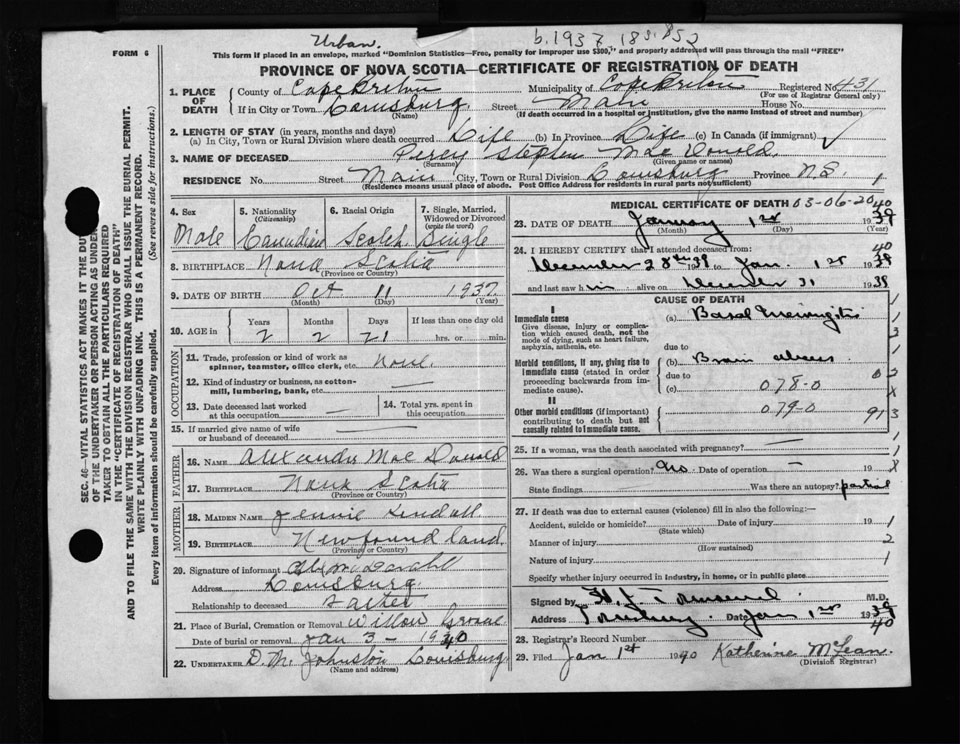 Urban,
b.1937 183.852
FORM 6
This form if placed in an envelope, marked "Dominion Statistics—Free, penalty for improper use $300," and properly addressed will pass through the mail "FREE"
PROVINCE OF NOVA SCOTIA—CERTIFICATE OF REGISTRATION OF DEATH
SEC. 46—VITAL STATISTICS ACT MAKES IT THE DUTY
OF THE UNDERTAKER OR PERSON ACTING AS UNDER
TAKER TO OBTAIN ALL THE PARTICULARS REQUIRED
IN THE "CERTIFICATE OF REGISTRATION OF DEATH"
AND TO FILE THE SAME WITH THE DIVISION REGISTRAR WHO SHALL ISSUE THE BURIAL PERMIT.
WRITE PLAINLY WITH UNFADING INK. THIS IS A PERMANENT RECORD.
Every item of information should be carefully supplied. (See reverse side for instructions.)
1. PLACE OF DEATH
County of Cape Breton Municipality of Cape Breton Registered No. 431
(For use of Registrar General only)
If in City or Town Louisburg. Street Main House No.
(Name) (If death occurred in a hospital or institution, give the name instead of street and number)
2. LENGTH OF STAY (in years, months and days)
(a) In City, Town or Rural Division where death occurred Life (b) In Province Life (c) In Canada (if immigrant) ✓
3. NAME OF DECEASED Percy Stephen MacDonald.
(Surname) (Given name or names)
RESIDENCE No. Street Main City, Town or Rural Division Louisburg Province N.S. 1
(Residence means usual place of abode. Post Office Address for residents in rural parts not sufficient)
4. Sex 5. Nationality (Citizenship) 6. Racial Origin 7. Single, Married, Widowed or Divorced (write the word)
Male Canadian Scotch Single
8. BIRTHPLACE Nova Scotia
(Province or Country)
9. DATE OF BIRTH Oct 11 1937
(Month) (Day) (Year)
10. AGE in Years Months Days If less than one day old
2 2 21 hrs. or min.
OCCUPATION
11. Trade, profession or kind of work as spinner, teamster, office clerk, etc. none.
12. Kind of industry or business, as cotton-mill, lumbering, bank, etc. —
13. Date deceased last worked at this occupation — 14. Total yrs. spent in this occupation
15. If married give name of wife or husband of deceased —
FATHER
16. NAME Alexander MacDonald
17. BIRTHPLACE Nova Scotia
(Province or Country)
MOTHER
18. MAIDEN NAME Jennie Kendall
19. BIRTHPLACE Newfoundland.
(Province or Country)
20. Signature of informant
Address Louisburg.
Relationship to deceased Father
21. Place of Burial, Cremation or Removal Willow Grove
Date of burial or removal Jan 3 - 1940
22. UNDERTAKER D. M. Johnston Louisburg.
(Name and address)
MEDICAL CERTIFICATE OF DEATH 03-06-20
23. DATE OF DEATH January 1st 1939 40
(Month) (Day) (Year)
24. I HEREBY CERTIFY that I attended deceased from:
December 28th 39 to Jan. 1st 1939 40
and last saw him alive on December 31 1939
CAUSE OF DEATH
I
Immediate cause
Give disease, injury or complication which caused death, not the mode of dying, such as heart failure, asphyxia, asthenia, etc.
(a) Basal Meningitis
due to
Morbid conditions, if any, giving rise to immediate cause (stated in order proceeding backwards from immediate cause).
(b) Brain abcess.
due to
(c) 078-0
II
Other morbid conditions (if important) contributing to death but not causally related to immediate cause.
079-0
25. If a woman, was the death associated with pregnancy? —
26. Was there a surgical operation? no Date of operation — 19
State findings Was there an autopsy? partial
27. If death was due to external causes (violence) fill in also the following:—
Accident, suicide or homicide? Date of injury 19
(State which)
Manner of injury
(How sustained)
Nature of injury
Specify whether injury occurred in industry, in home, or in public place
Signed by M.D.
Address Louisburg. Date Jan 1st 1939 40
28. Registrar's Record Number
29. Filed Jan 1st 1940 Katherine McLean.
(Division Registrar)